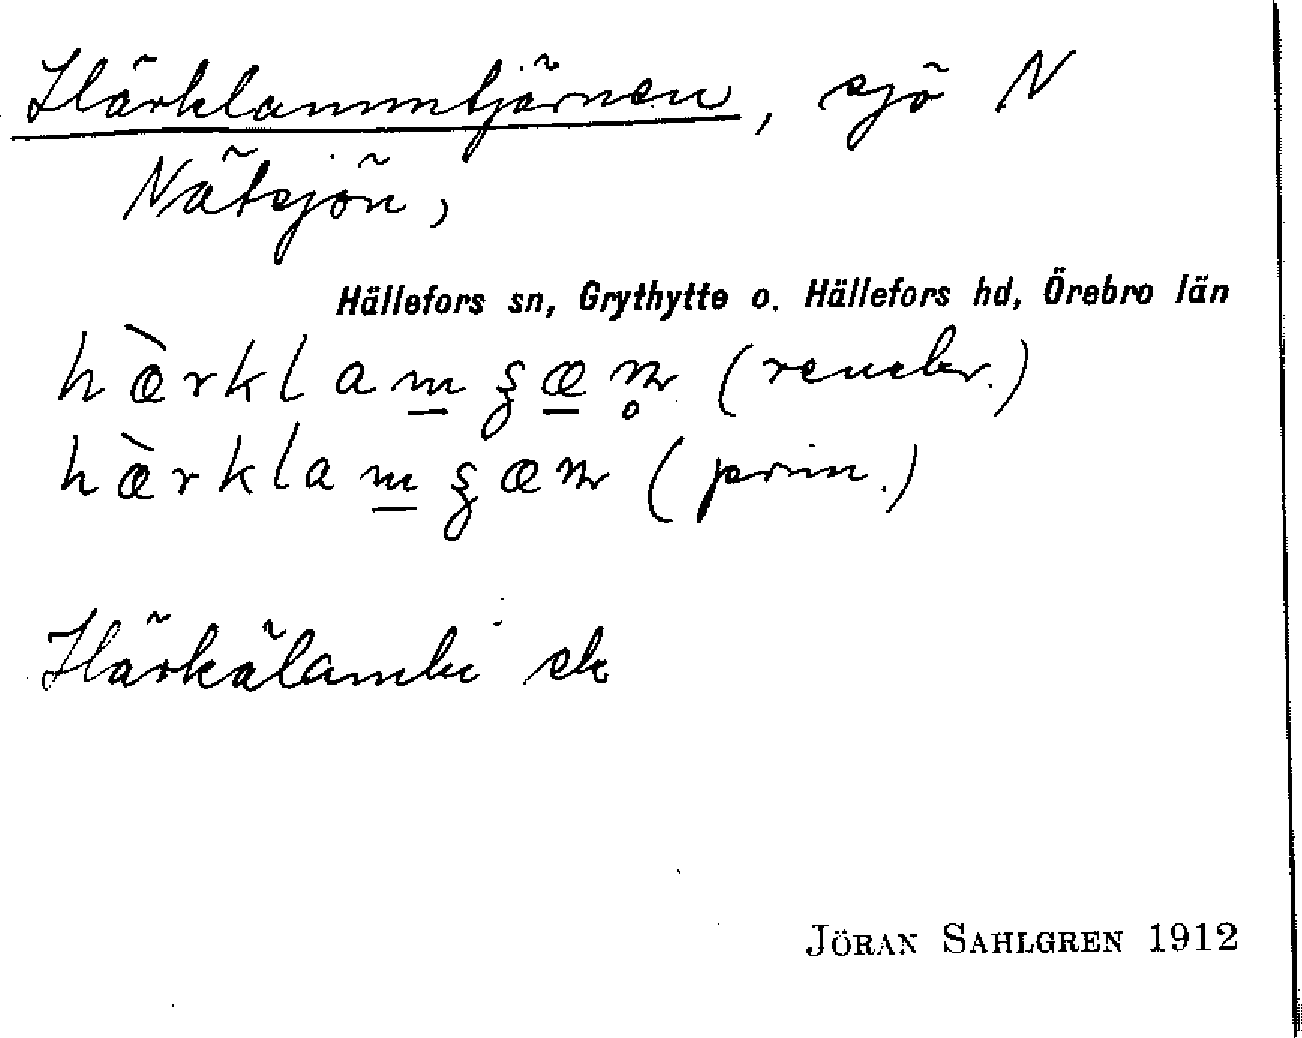 Härklammtjärnen, sjö N
Nätsjön,
Hällefors sn, Grythytte o. Hällefors hd, Örebro län
hæ̀rklam̲ʂæ̲n̥
hæ̀rklam̲ʂæn (prim.)
Härkälambi sk
JÖRAN SAHLGREN 1912